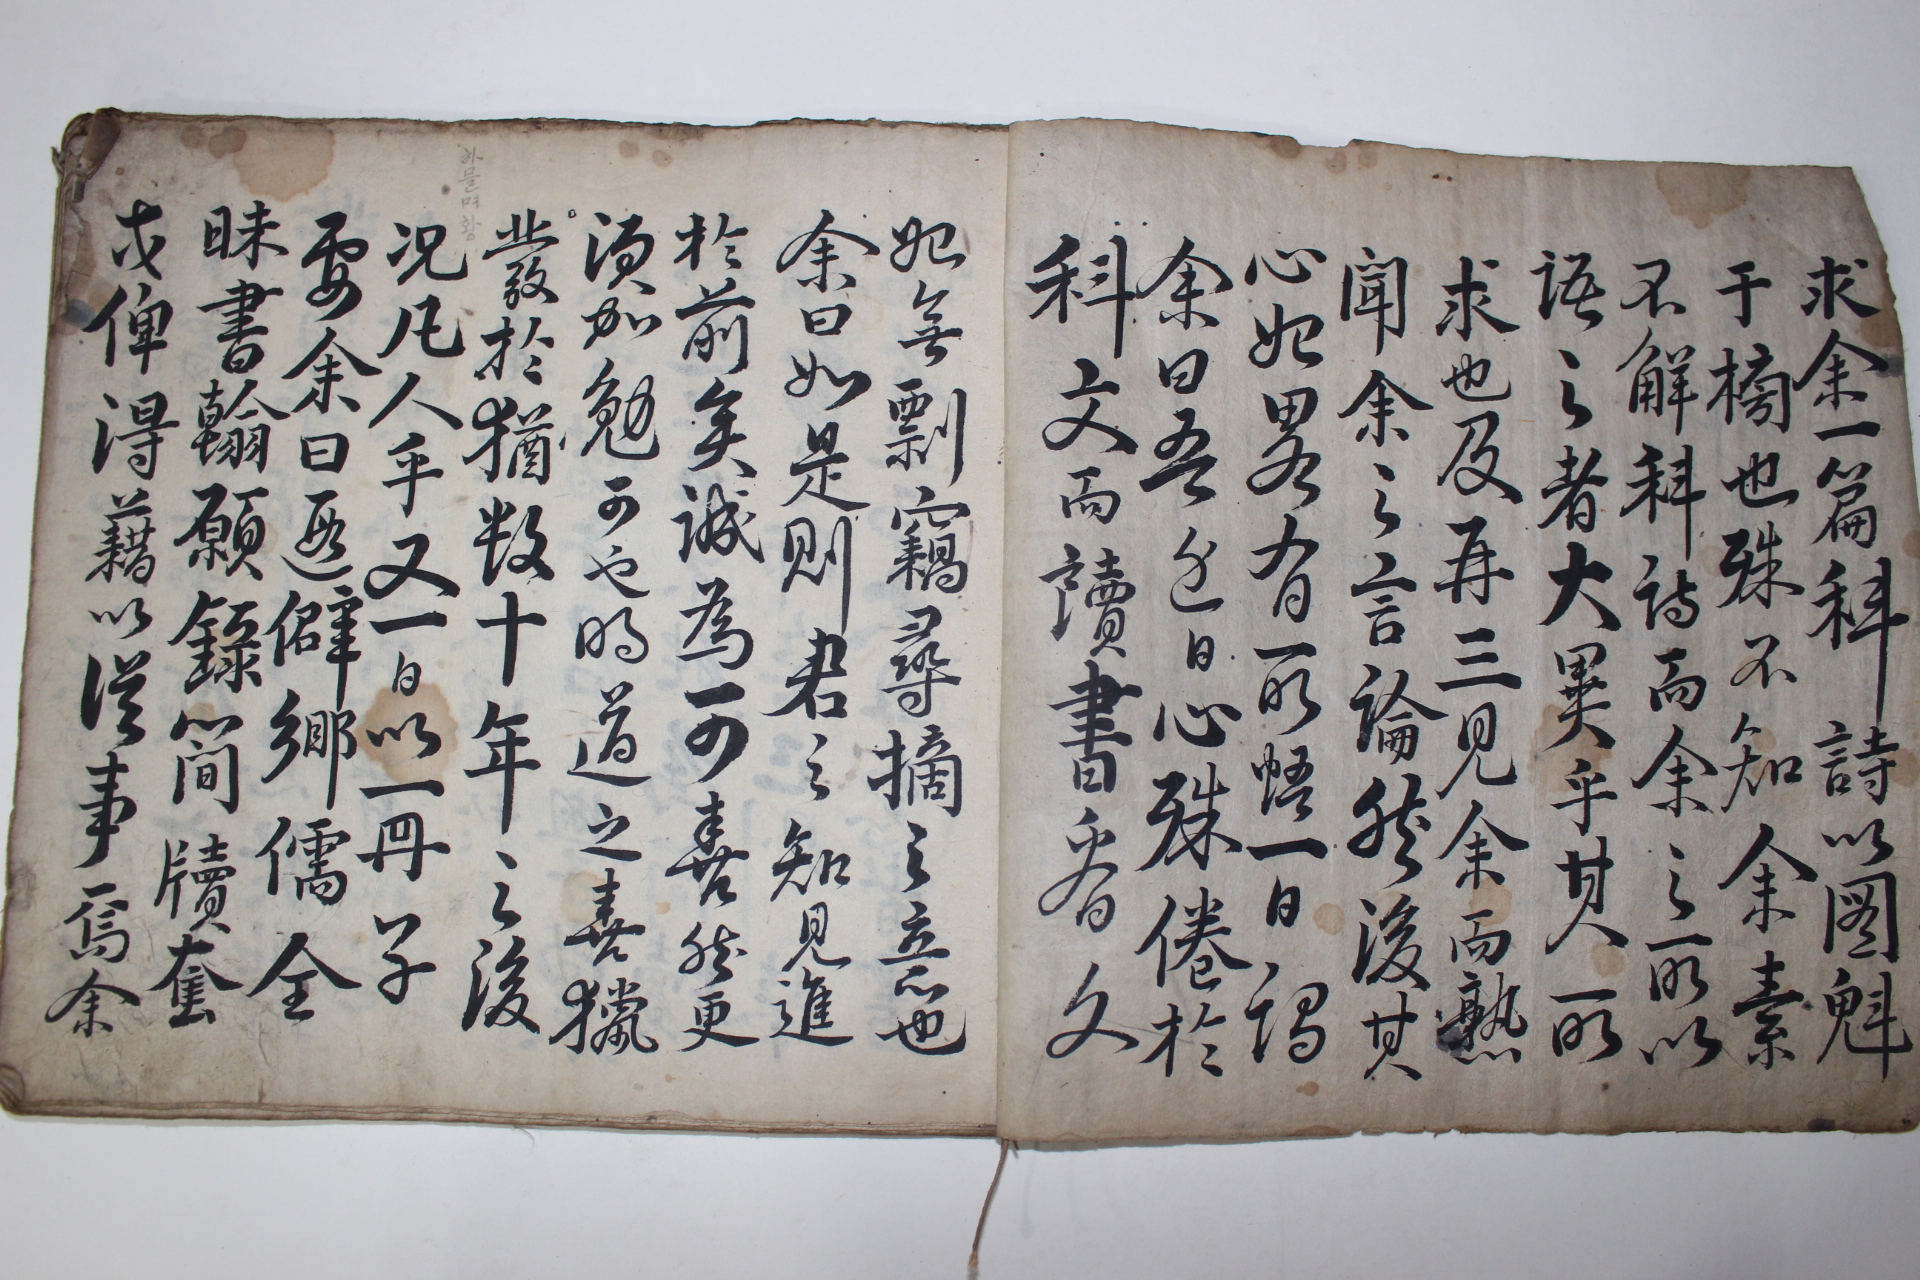 求余一篇科詩以圖魁
于榜也殊不知余素
不解科詩而余之所以
語之者大異乎其所
求也及再三見余而熟
聞余之言論然後其
心始畧有所悟一日謁
余曰吾近日心殊倦於
科文而讀書看文
始無剽竊尋摘之志也
余曰如是則君之知見進
於前矣誠為可喜然更
須加勉可也明道之喜獵
發於猶數十年之後
況凡人乎又一日以一冊子
要余曰遐僻鄉儒全
昧書翰願錄簡牘套
式俾得藉以從事焉余
하물며황